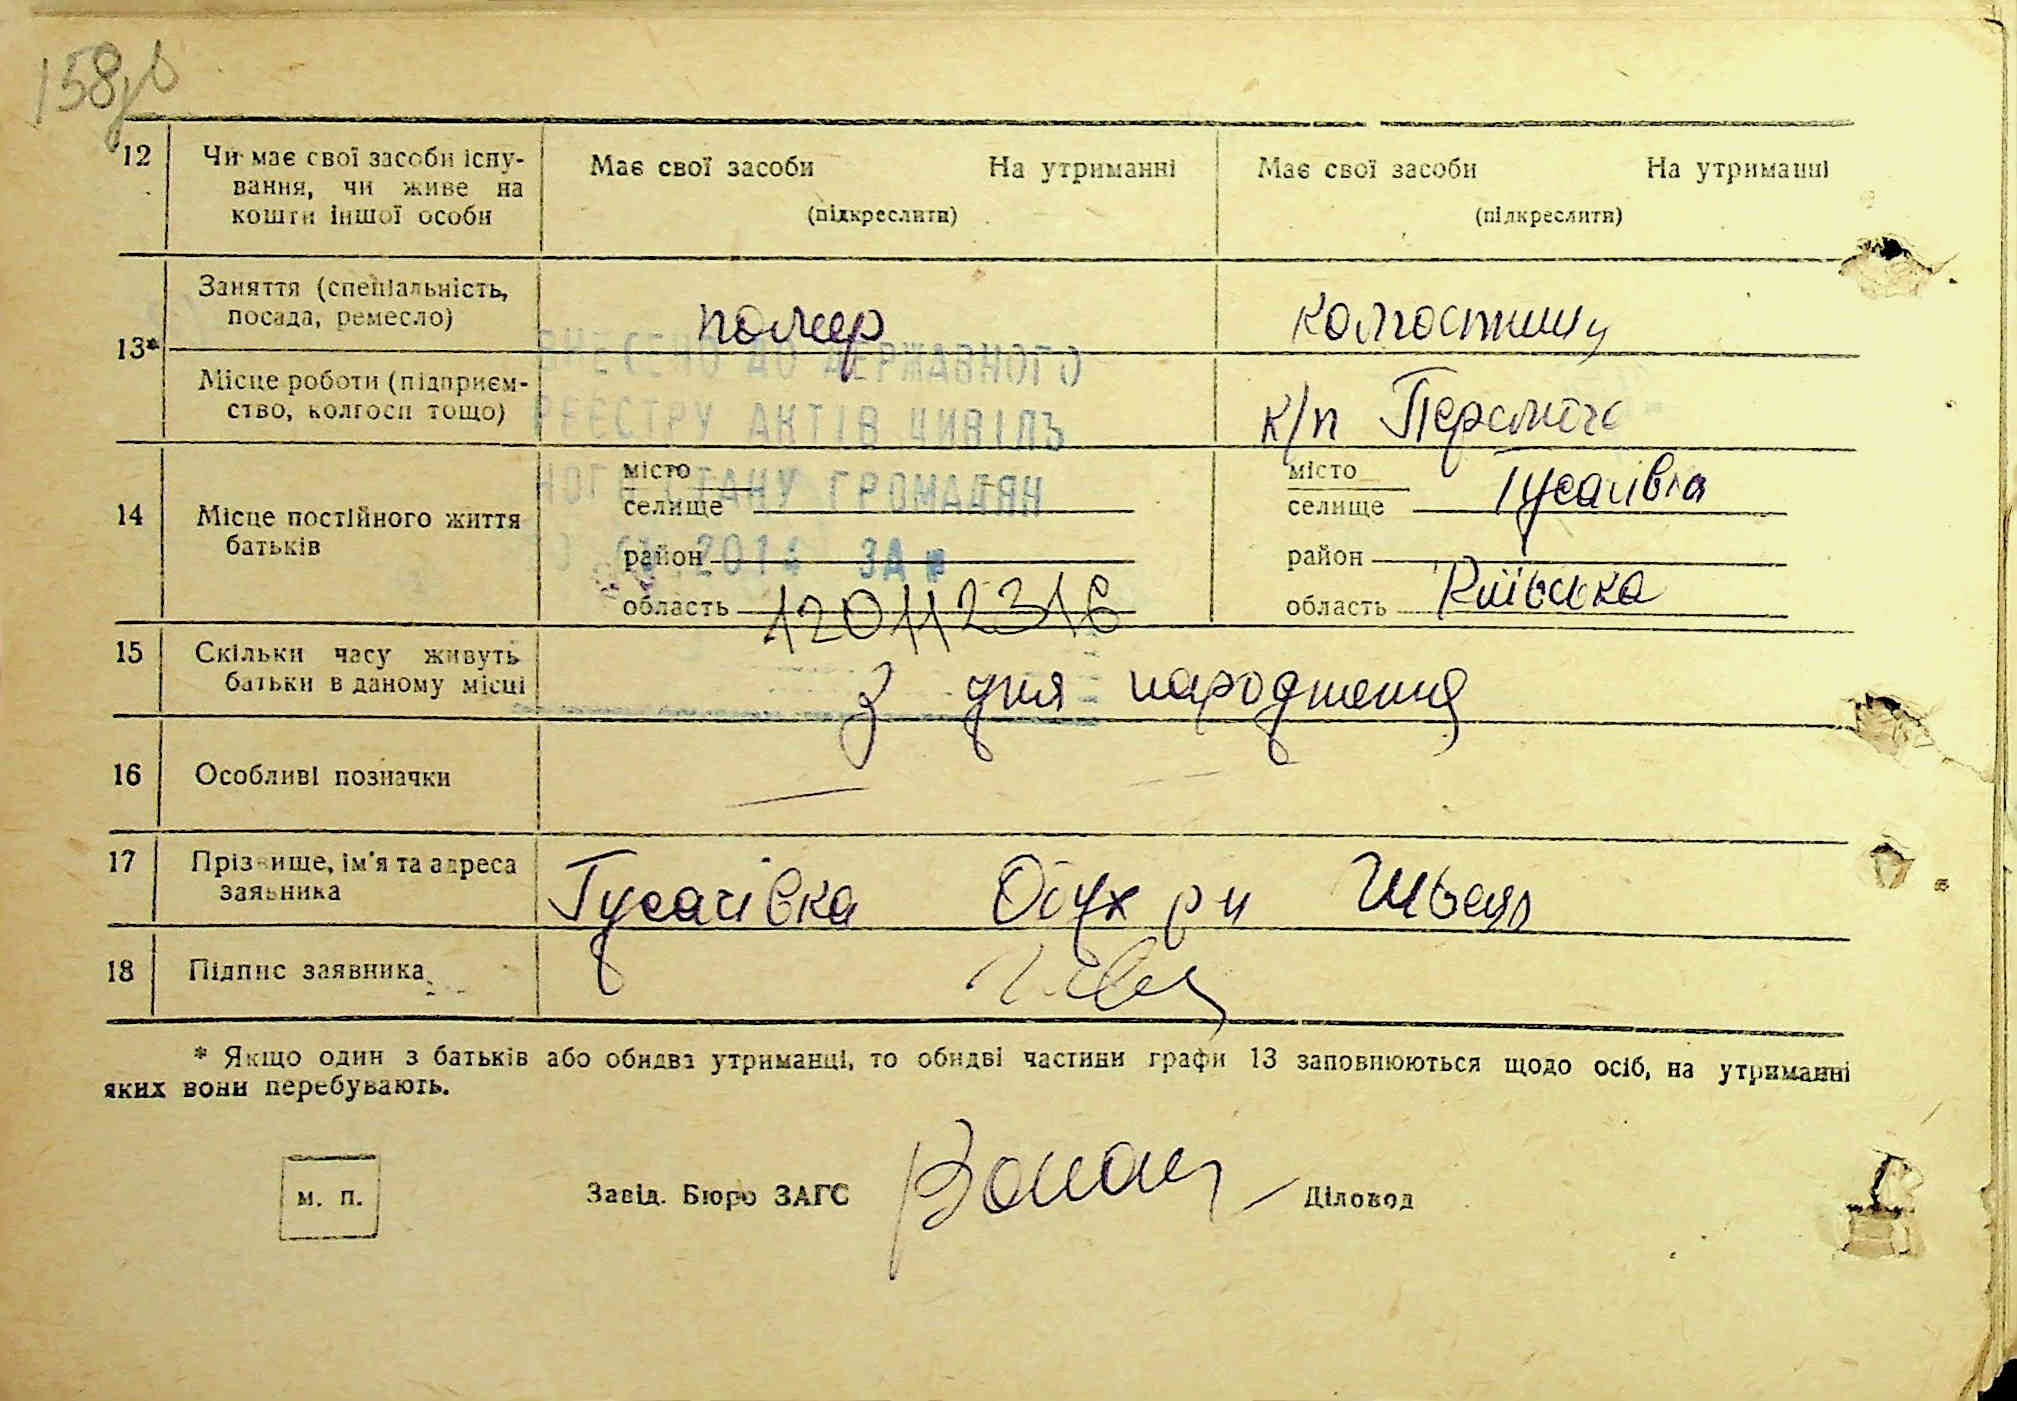 158
12 Чи має свої засоби існу-
вання, чи живе на
кошти іншої особи
Має свої засоби На утриманні
(підкреслити)
Має свої засоби На утриманні
(підкреслити)
13* Заняття (спеціальність,
посада, ремесло)
помер
Місце роботи (підприєм-
ство, колгосп тощо)
к/п Перемога
ВНЕСЕНО ДО ДЕРЖАВНОГО
РЕЄСТРУ АКТІВ ЦИВІЛЬ
НОГО СТАНУ ГРОМАДЯН
2014 ЗА №
14 Місце постійного життя
батьків
місто
селище
район
область 120112316
місто
селище Гусачівка
район
область Київська
15 Скільки часу живуть
батьки в даному місці
З дня народження
16 Особливі позначки
17 Прізвище, ім'я та адреса
заявника
Гусачівка Обух р н
18 Підпис заявника
* Якщо один з батьків або обидва утриманці, то обидві частини графи 13 заповнюються щодо осіб, на утриманні
яких вони перебувають.
м. п.
Завід. Бюро ЗАГС
Діловод